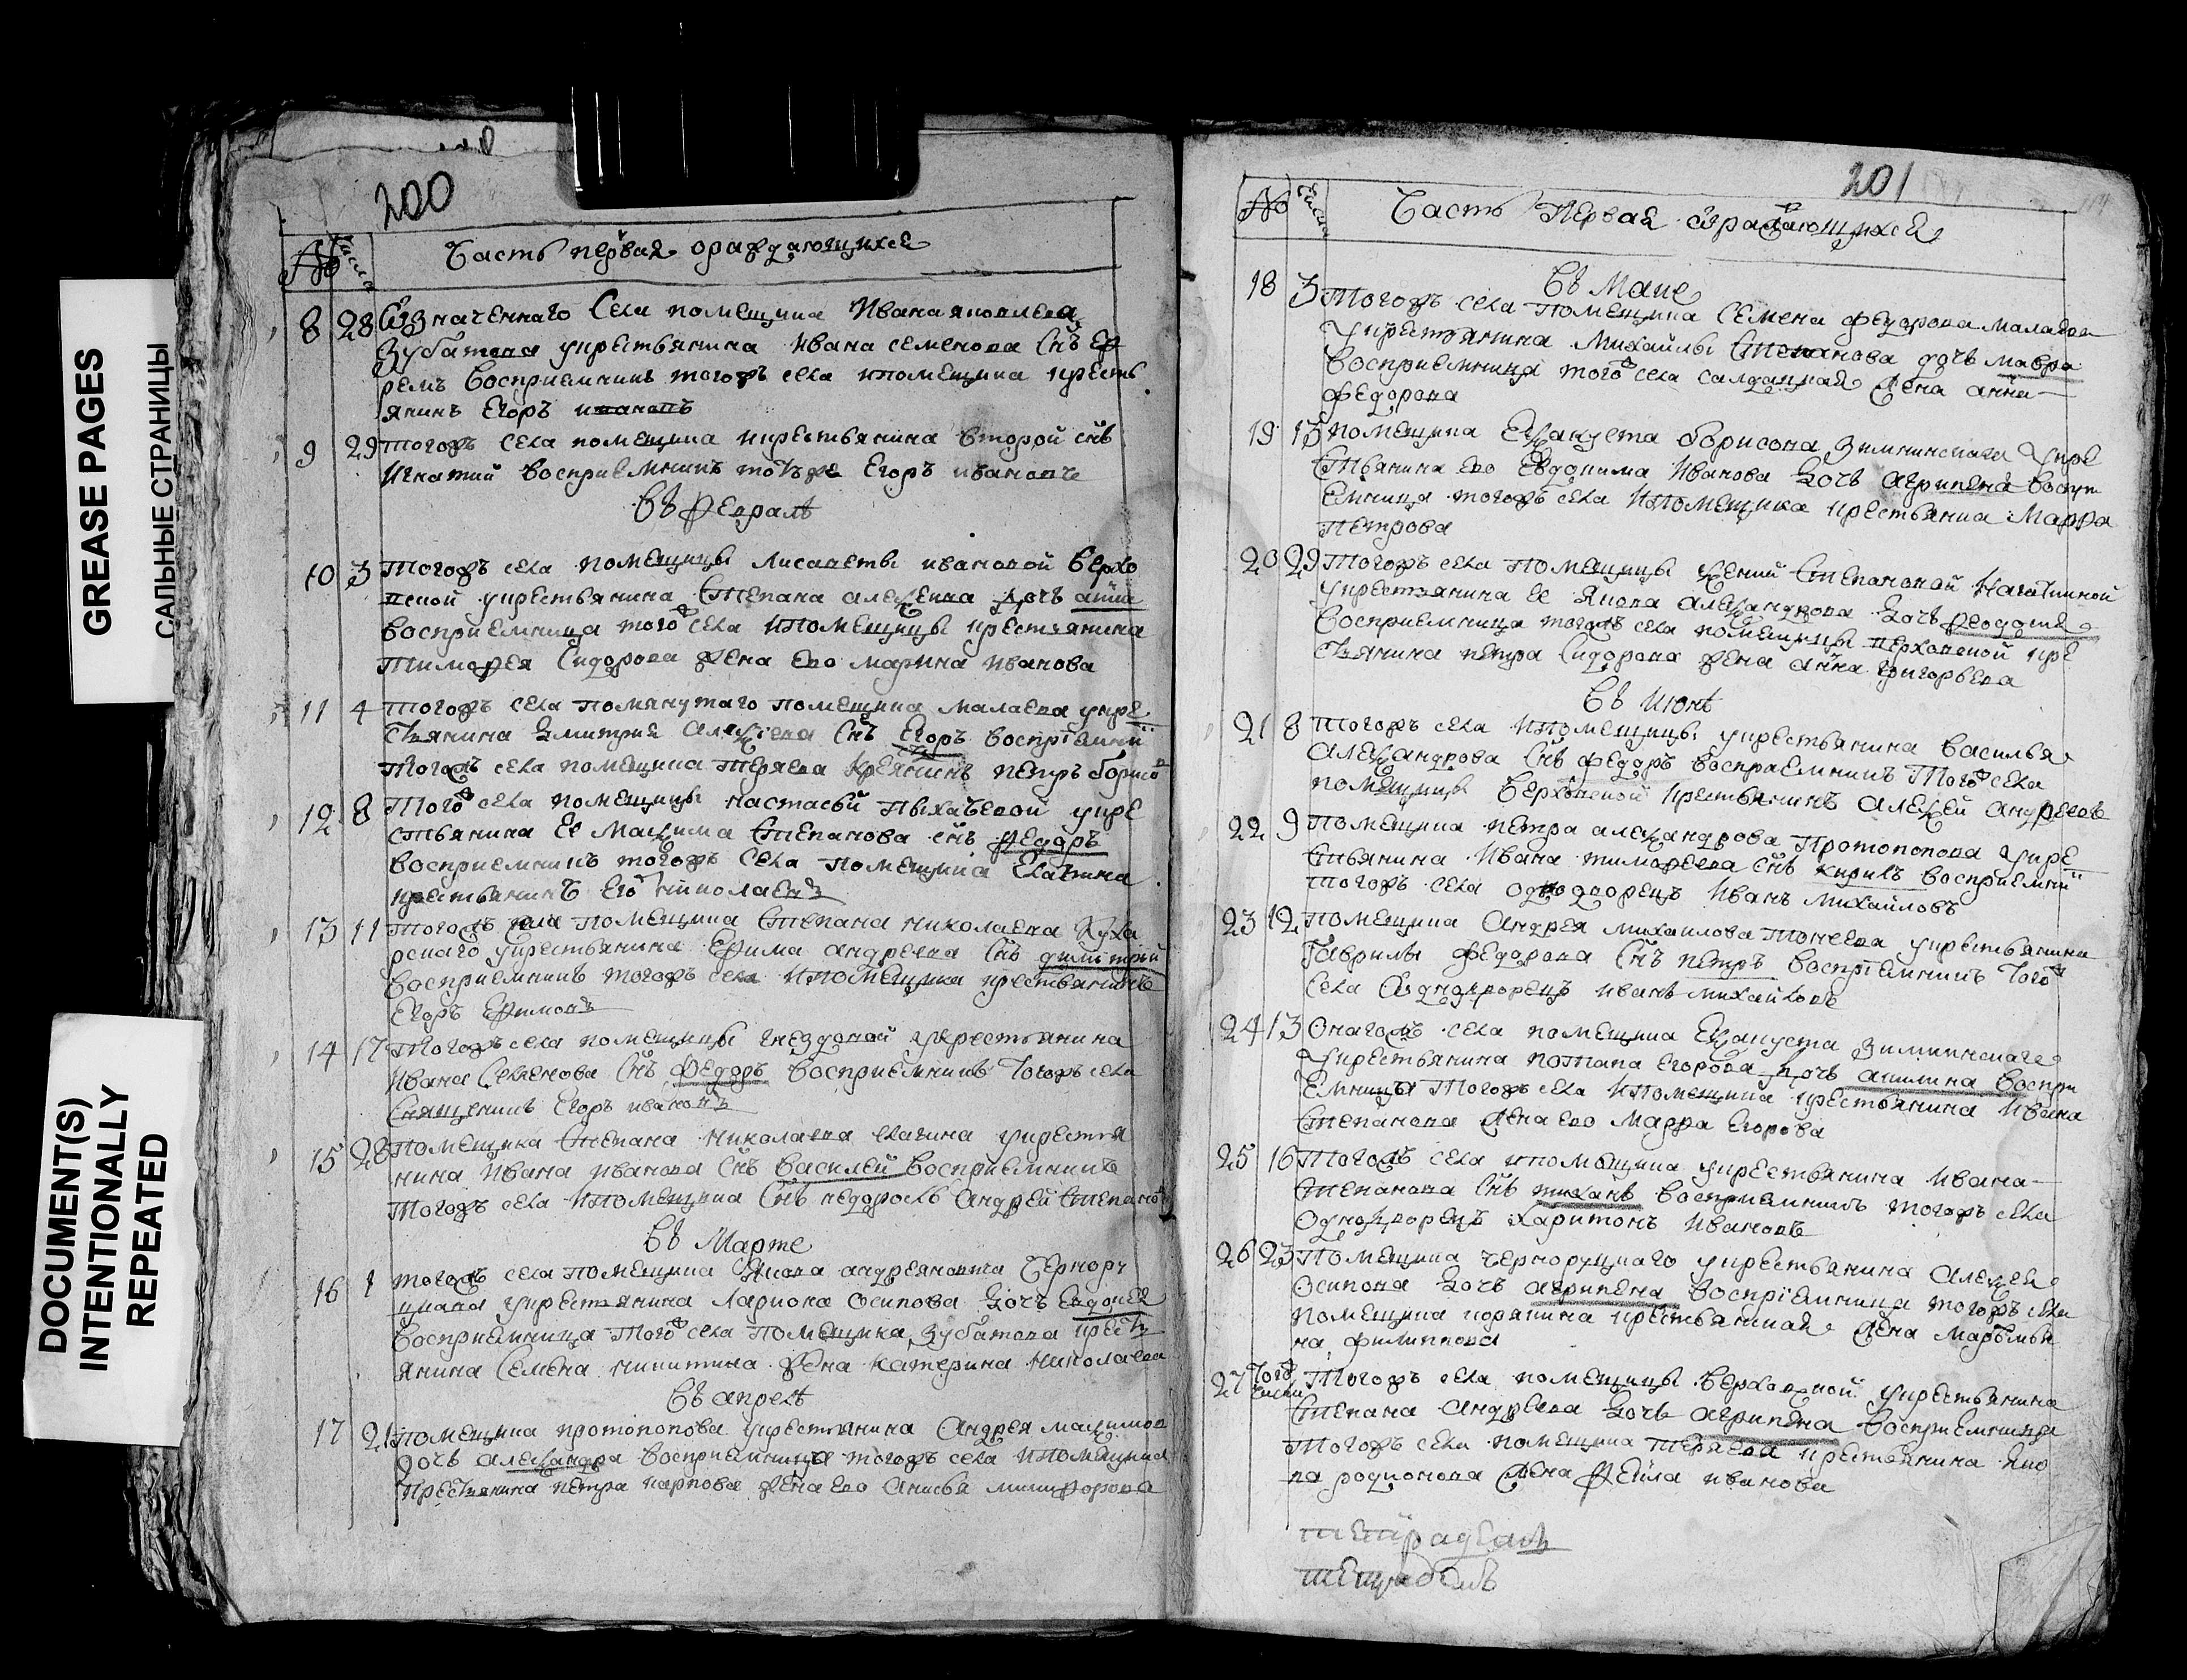 GREASE PAGES
САЛЬНЫЕ СТРАНИЦЫ
DOCUMENT(S)
INTENTIONALLY
REPEATED
200
№ числа Часть первая ораждающихся
8 28 Означеннаго села помещика Ивана яковлева
Зубатова укрестьянина Ивана семенова снъ Еф
ремъ восприемникъ тогожъ села ипомещика кресть
янинъ Егоръ ивановъ
9 29 тогожъ села помещика икрестьянина второй снъ
Игнатий восприемникъ тотъже Егоръ ивановъ
Въ феврале
10 3 Тогожъ села помещицы лисаветы ивановой верхо
вской укрестьянина Степана алеѯева дочь анна
восприемница тогож села ипомещицы крестьянина
тимофея Сидорова жена ево марина иванова
11 4 тогожъ села помянутаго помещика малаева укре
стьянина Дмитрия Алеѯiева снъ Егоръ воспрiемни
тогожъ села помещика теряева крестьянинъ петръ борисо
12 8 Тогож села помещицы настасьи пыхачевой укре
стьянина ее маѯима Степанова снъ федоръ
восприемникъ тогожъ села помещика Елагина
крестьянинъ Его николаевъ
13 11 тогожъ села помещика Степана николаева Куха
рскаго укрестьянина Ефима андреева снъ димитрий
восприемникъ тогожъ села ипомещика крестьянинъ
Егоръ Ефимовъ
14 17 Тогожъ села помещицы гнездовой укрестьянина
Ивана Семенова снъ федоръ восприемникъ тогожъ села
Священникъ Егоръ ивановъ
15 28 помещика Степана николаева елагина укрестья
нина Ивана иванова снъ василей восприемникъ
тогожъ села ипомещика снъ недоросль Андрей степано
Въ Марте
16 1 тогожъ села помещика Якова андреяновича Чернору
цкаго укрестьянина Лариона осипова дочь Евдокея
восприемница тогож села помещика зубатова кресть
янина семена никитина жена катерина николаева
Въ апреле
17 21 помещика протопопова укрестьянина Андрея маѯимов
дочь алеѯандра восприемница тогожъ села ипомещика
крестьянина петра карпова жена ево анисья никифорова
201
№ числа Часть Первая ораждающихся
Въ Маие
18 3 Тогожъ села помещика семена федорова малаева
укрестьянина михайлы Степанова дочь мавра
восприемница того села салдацкая жена анна
федорова
19 13 помещика Евѯакуста борисова зиминскаго укре
стьянина ево Евдокима Иванова дочь агрипена воспри
емница тогожъ села ипомещика крестьянка марфа
петрова
20 29 Тогожъ села помещицы Степановой
укрестьянина ее Якова алеѯандрова дочь феодосия
восприемница тогожъ села помещицы верховской кре
стьянина петра Сидорова жена анна григорьева
Въ июне
21 8 Тогожъ села ипомещицы укрестьянина василья
алеѯандрова снъ федоръ восприемникъ Того села
помещицы верховской крестьянинъ алеѯей андреевъ
22 9 помещика петра алеѯандрова протопопова укре
стьянина Ивана тимофеева снъ кирилъ восприемни
тогожъ села однодворецъ Иванъ михайловъ
23 12 помещика андрея михаилова Тонеева укрестьянина
гаврилы федорова снъ петръ воспрiемникъ того
села однодворецъ иванъ михайловъ
24 13 Онагожъ села помещика зиминскаго
укрестьянина потапа егорова дочь акилина воспри
емница тогожъ села ипомещика крестьянина ивана
Степанова жена ево марфа егорова
25 16 Тогожъ села ипомещика укрестьянина Ивана
Степанова снъ тиханъ восприемникъ тогожъ села
Однодворецъ харитонъ ивановъ
26 23 помещика черноруцкаго укрестьянина алеѯея
осипова дочь агрипена воспрiемница тогожъ села
помещика крестьянина жена марьмья
на филиппова
27 того числа Тогожъ села помещицы верховской укрестьянина
Степана андреева дочь агрипена восприемница
тогожъ села помещика теряева крестьянина яко
ва родионова жена фекла иванова